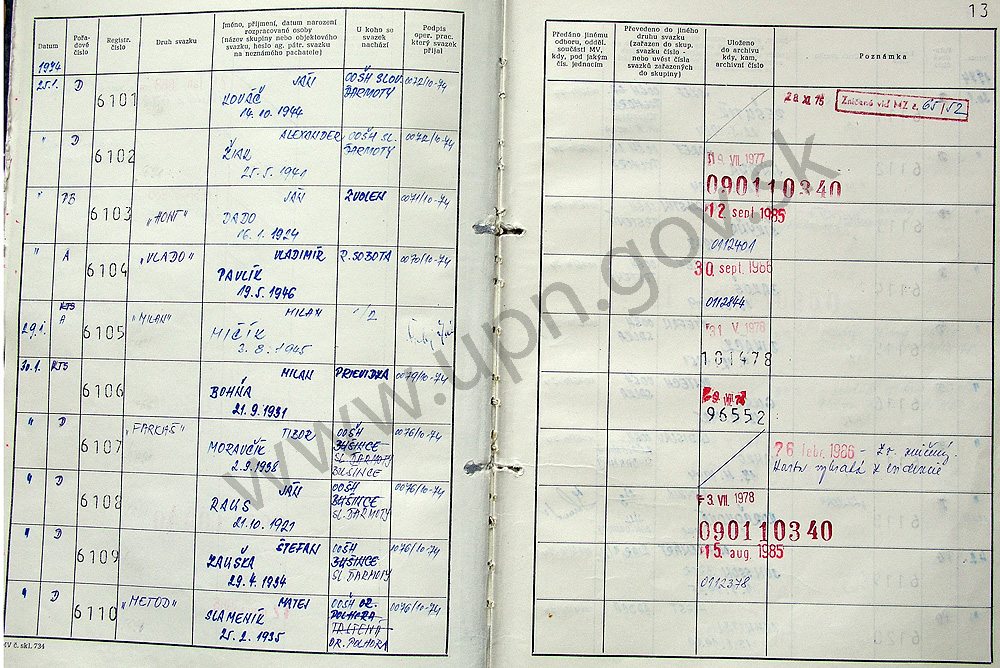 13
Datum
Pořa-
dové
číslo
Registr.
číslo
Druh svazku
Jméno, příjmení, datum narození
rozpracované osoby
(název skupiny nebo objektového
svazku, heslo ag. pátr. svazku
na neznámého pachatele)
U koho se
svazek
nachází
Podpis
oper. prac.
který svazek
přijal
Předáno jinému
odboru, odděl.
součásti MV,
kdy, pod jakým
čís. jednacím
Převedeno do jiného
druhu svazku
(zařazen do skup.
svazku číslo -
nebo uvést čísla
svazků zařazených
do skupiny)
Uloženo
do archivu
kdy, kam,
archivní číslo
Poznámka
1974
25.1. D 6101 JÁN OOŠH SLOV. 0072/10-74
KOVÁČ ĎARMOTY
14.10.1944
28 XI 75 Zničené viď MZ č. 65/52
" D 6102 ALEXANDER OOŠH SL. 0072/10-74
ŽIAK ĎARMOTY
25.5.1941
19. VII. 1977
090110340
" PB 6103 "HONT" JÁN ZVOLEN 0071/10-74
DADO
16.1.1924
12. sept 1985
0112401
" A 6104 "VLADO" VLADIMÍR R. SOBOTA 0070/10-74
PAVLÍK
19.5.1946
30. sept. 1986
0112844
29.1. KTS
A 6105 "MILAN" MILAN
MIČÍK
3.8.1945
31 V 1978
101478
30.1. KTS 6106 MILAN PRIEVIDZA 0079/10-74
BOHŇA
21.9.1931
96552
" D 6107 "FARKAŠ" TIBOR OOŠH 0076/10-74
MORAVČÍK BUŠINCE
2.9.1938 SL. ĎARMOTY
BUŠINCE
26 febr. 1986 - Zv. zničený.
Karta vybratá z evidencie
" D 6108 JÁN OOŠH 0076/10-74
RAUS BUŠINCE
21.10.1921 SL. ĎARMOTY
-3. VII. 1978
090110340
" D 6109 ŠTEFAN OOŠH 0076/10-74
KAUŠKA BUŠINCE
29.4.1934 SL ĎARMOTY
15. aug. 1985
0112378
" D 6110 "METOD" MATEJ OOŠH DR. 0076/10-74
SLAMENÍK POLHORA
25.2.1935
DR. POLHORA
MV č. skl. 734
www.upn.gov.sk